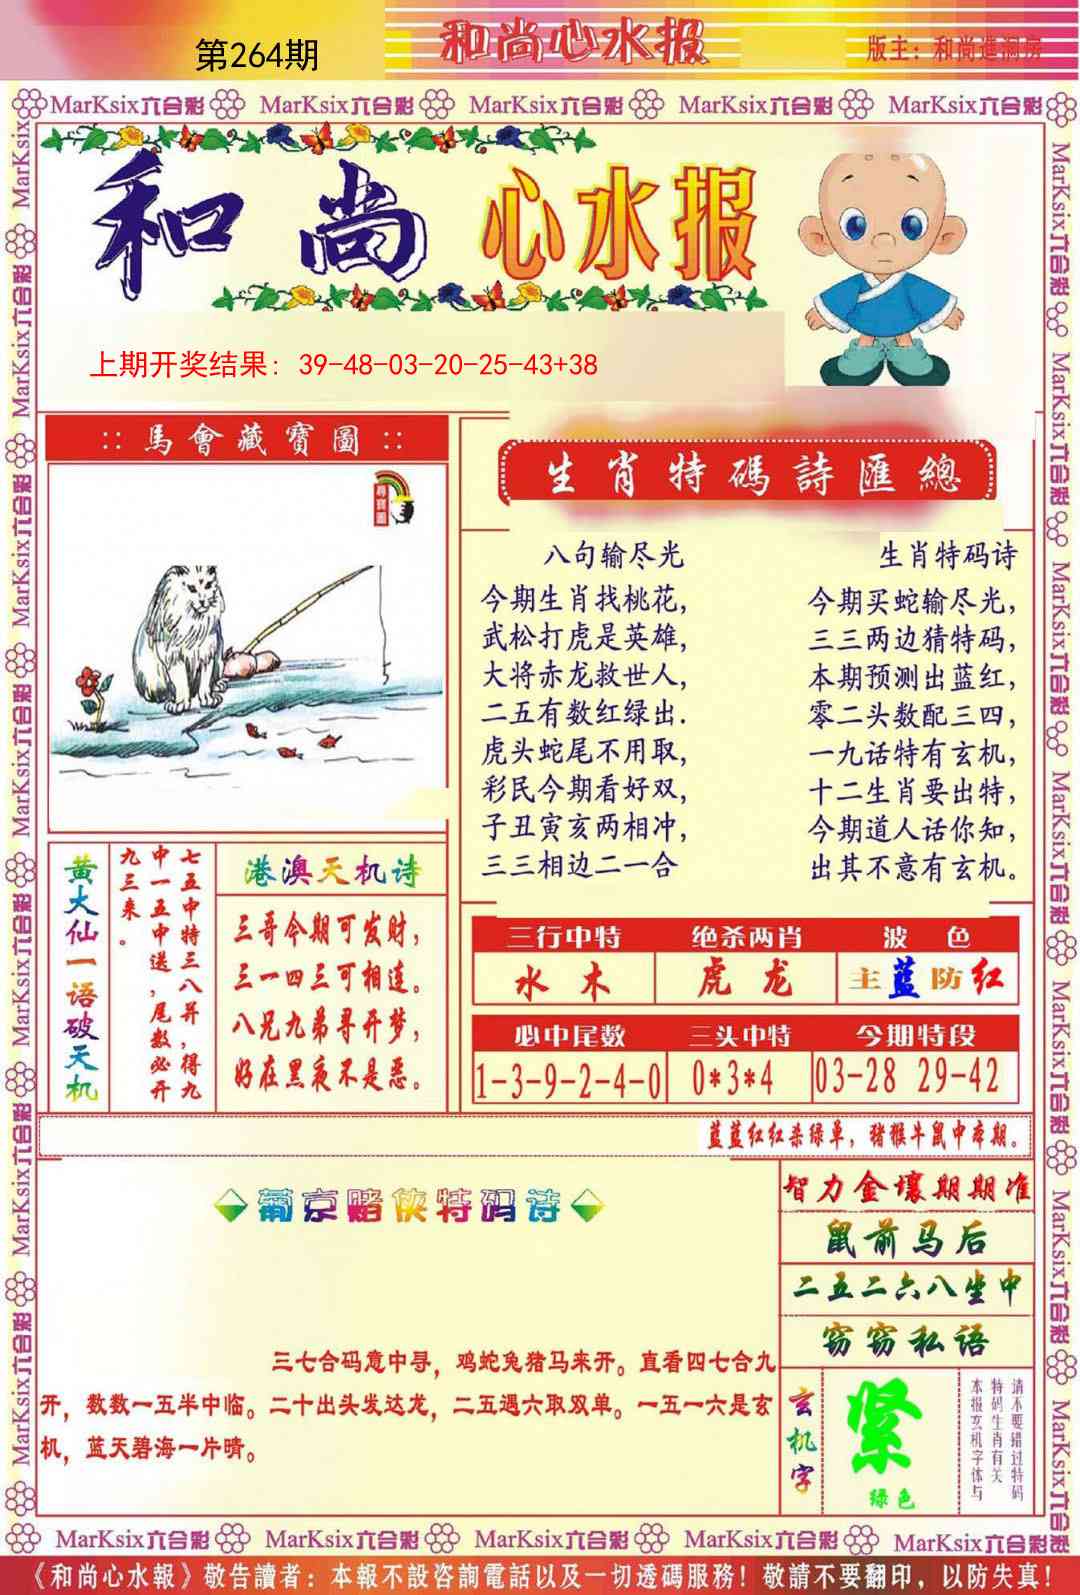 第264期
和尚心水报
版主：和尚進洞房
MarKsix六合彩 MarKsix六合彩 MarKsix六合彩 MarKsix六合彩 MarKsix六合彩
和尚心水报
上期开奖结果：39-48-03-20-25-43+38
馬會藏寶圖
尋寶圖
生肖特碼詩匯總
八句输尽光
今期生肖找桃花，
武松打虎是英雄，
大将赤龙救世人，
二五有数红绿出．
虎头蛇尾不用取，
彩民今期看好双，
子丑寅亥两相冲，
三三相边二一合
生肖特码诗
今期买蛇输尽光，
三三两边猜特码，
本期预测出蓝红，
零二头数配三四，
一九话特有玄机，
十二生肖要出特，
今期道人话你知，
出其不意有玄机。
黄大仙一语破天机
七五中特三八并，得九
中一五中送，尾数必开
九三来。
港澳天机诗
三哥今期可发财，
三一四三可相连。
八兄九弟寻开梦，
好在黑夜不是恶。
三行中特 绝杀两肖 波色
水木 虎龙 主蓝防红
必中尾数 三头中特 今期特段
1-3-9-2-4-0 0*3*4 03-28 29-42
蓝蓝红红杀绿单，猪猴牛鼠中本期。
葡京赌侠特码诗
三七合码意中寻，鸡蛇兔猪马来开。直看四七合九
开，数数一五半中临。二十出头发达龙，二五遇六取双单。一五一六是玄
机，蓝天碧海一片晴。
智力金壤期期准
鼠前马后
二五二六八坐中
窃窃私语
玄机字
紧
绿色
请不要错过特码
特码生肖有关
本报玄机字体与
MarKsix六合彩 MarKsix六合彩 MarKsix六合彩 MarKsix六合彩 MarKsix六合彩
《和尚心水報》敬告讀者：本報不設咨詢電話以及一切透碼服務！敬請不要翻印，以防失真！